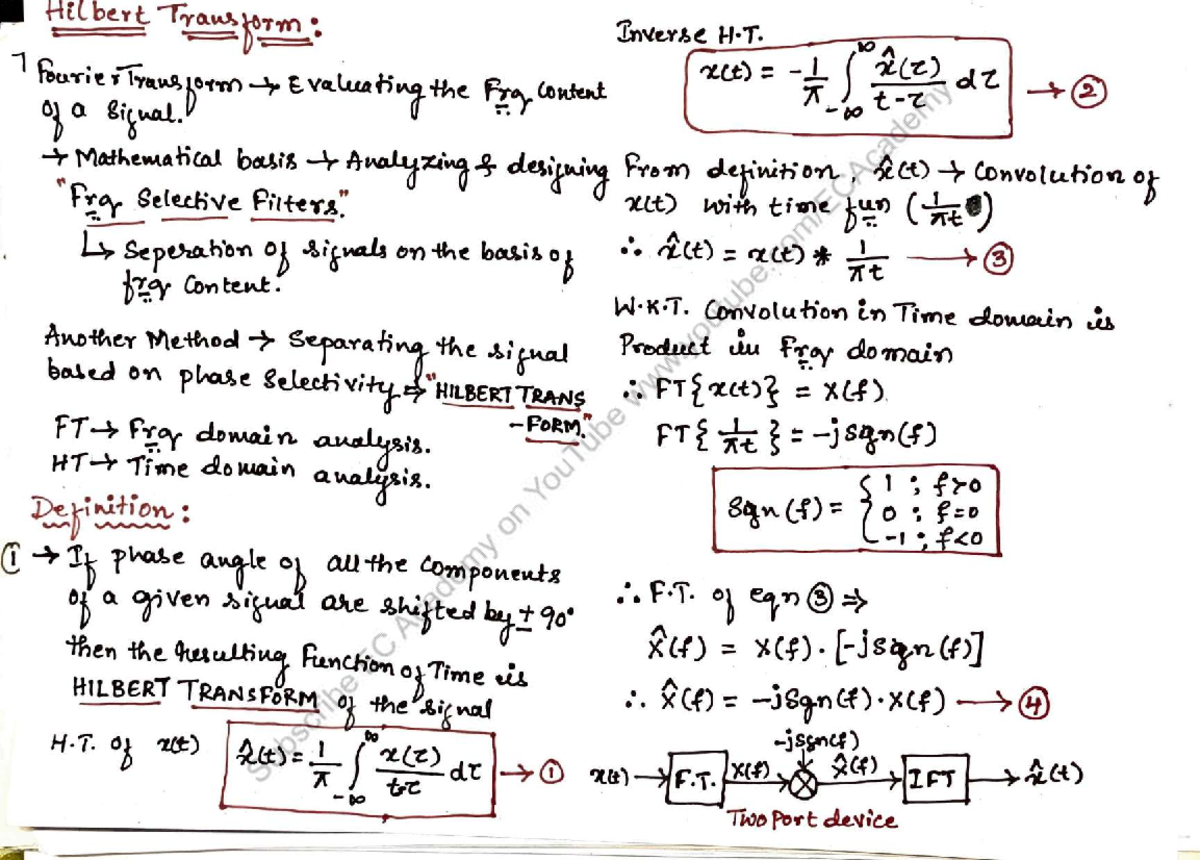 Hilbert Transform:
Fourier Transform → Evaluating the Frq Content
of a Signal.
→ Mathematical basis → Analyzing & designing
"Frq Selective Filters."
↳ Seperation of signals on the basis of
frq Content.
Another Method → Separating the signal
based on phase Selectivity ⇒ "HILBERT TRANS
-FORM."
FT → Frq domain analysis.
HT → Time domain analysis.
Definition:
① → If phase angle of all the components
of a given signal are shifted by ± 90°
then the resulting Function of Time is
HILBERT TRANSFORM of the signal
H.T. of x(t) x̂(t) = 1/π ∫_{-∞}^{∞} x(τ)/(t-τ) dτ → ①
Inverse H.T.
x(t) = -1/π ∫_{-∞}^{∞} x̂(τ)/(t-τ) dτ → ②
From definition, x̂(t) → Convolution of
x(t) with time fun (1/πt)
∴ x̂(t) = x(t) * 1/πt → ③
W.K.T. Convolution in Time domain is
Product in Frqy domain
∴ FT{x(t)} = X(f)
FT{1/πt} = -jsgn(f)
Sgn(f) = { 1 ; f>0
0 ; f=0
-1 ; f<0
∴ F.T. of eqn ③ ⇒
X̂(f) = X(f) . [-jsgn(f)]
∴ X̂(f) = -jSgn(f) . X(f) → ④
-jsgn(f)
x(t) → F.T. X(f) → ⊗ X̂(f) → IFT → x̂(t)
Two Port device
Subscribe EC Academy on YouTube www.youtube.com/ECAcademy